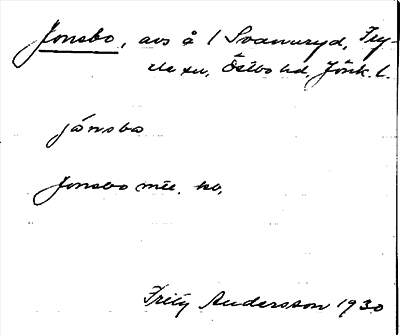 Jonsbo, avs å 1 Svanuryd, Try-
de sn, Östbo hd, Jönk. l.
jónsbo
Jonsbo mtl. kb,
Fritz Andersson 1930